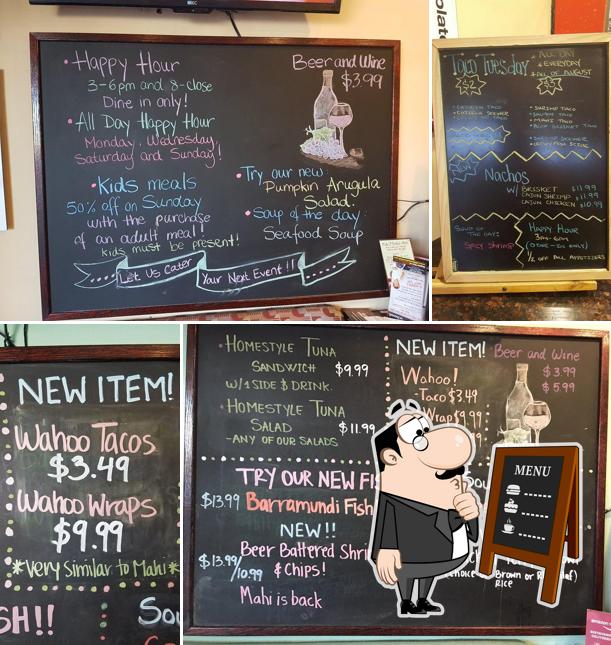 Happy Hour
3-6pm and 8-close
Dine in only!
All Day Happy Hour
Monday, Wednesday,
Saturday and Sunday!
Kids meals
50% off on Sunday
with the purchase
of an adult meal!
kids must be present!
Beer and Wine
$3.99
Try our new:
Pumpkin Arugula
Salad.
Soup of the day:
Seafood Soup
Let Us Cater
Your Next Event!!
Taco Tuesday
ALL DAY
EVERYDAY
ALL OF AUGUST
SHRIMP TACO
SALMON TACO
MAHI TACO
BEEF BRISKET TACO
Nachos
W/ BRISKET $11.99
CAJUN SHRIMP $11.99
CAJUN CHICKEN $10.99
SOUP OF
THE DAY:
Spicy Shrimp
HAPPY HOUR
3PM-6PM
(DINE-IN ONLY)
1/2 OFF ALL APPETIZERS
NEW ITEM!
Wahoo Tacos
$3.49
Wahoo Wraps
$9.99
*Very Similar to Mahi*
SH!!
Sou
HOMESTYLE TUNA
SANDWICH $9.99
W/ 1 SIDE & DRINK.
HOMESTYLE TUNA
SALAD $11.99
-ANY OF OUR SALADS
TRY OUR NEW FIS
$13.99 Barramundi Fish
NEW!!
$13.99/10.99 Beer Battered Shri
& Chips!
Mahi is back
NEW ITEM!
Wahoo!
Taco $3.49
Wrap $9.99
Beer and Wine
$3.99
$5.99
MENU
Brown or R
Rice